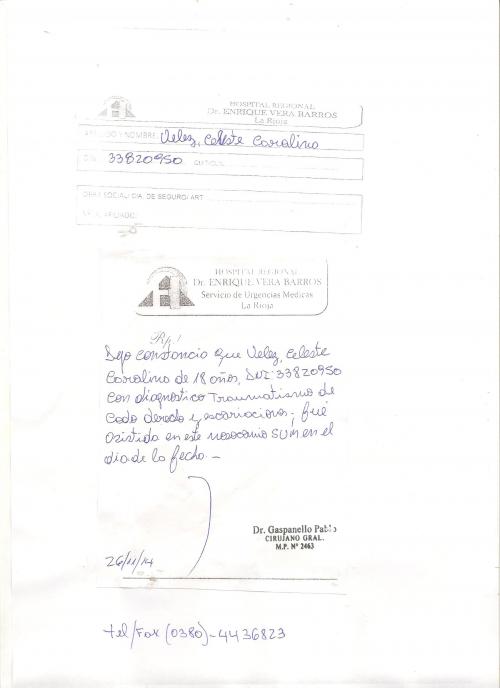 HOSPITAL REGIONAL
Dr. ENRIQUE VERA BARROS
La Rioja
APELLIDO Y NOMBRE: Velez, Celeste Carolina
D.N.I. 33820950
OBRA SOCIAL/ CIA. DE SEGURO/ ART
Nº A. AFILIADO:
HOSPITAL REGIONAL
Dr. ENRIQUE VERA BARROS
Servicio de Urgencias Medicas
La Rioja
Rp./
Dejo constancia que Velez, Celeste
Carolina de 18 años, DNI: 33820950
con diagnostico Traumatismo de
Codo derecho y escoriaciones; fué
asistida en este nosocomio SUM en el
dia de la fecha. -
Dr. Gaspanello Pablo
CIRUJANO GRAL.
M.P. Nº 2463
26/11/14
tel/Fax (0380)-4436823